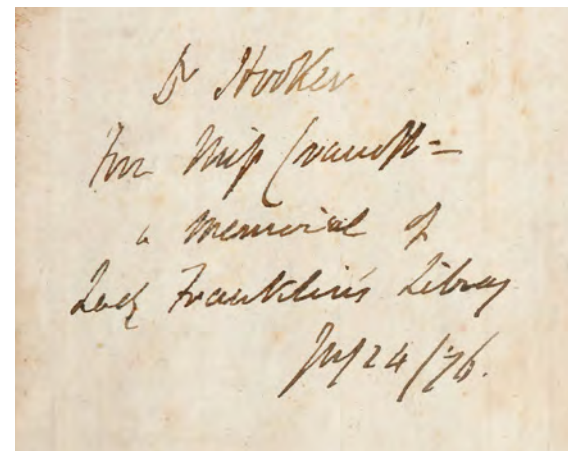 Dr Hooker
From Miss Cracroft =
a memorial of
Lady Franklin's Library
July 24/76.